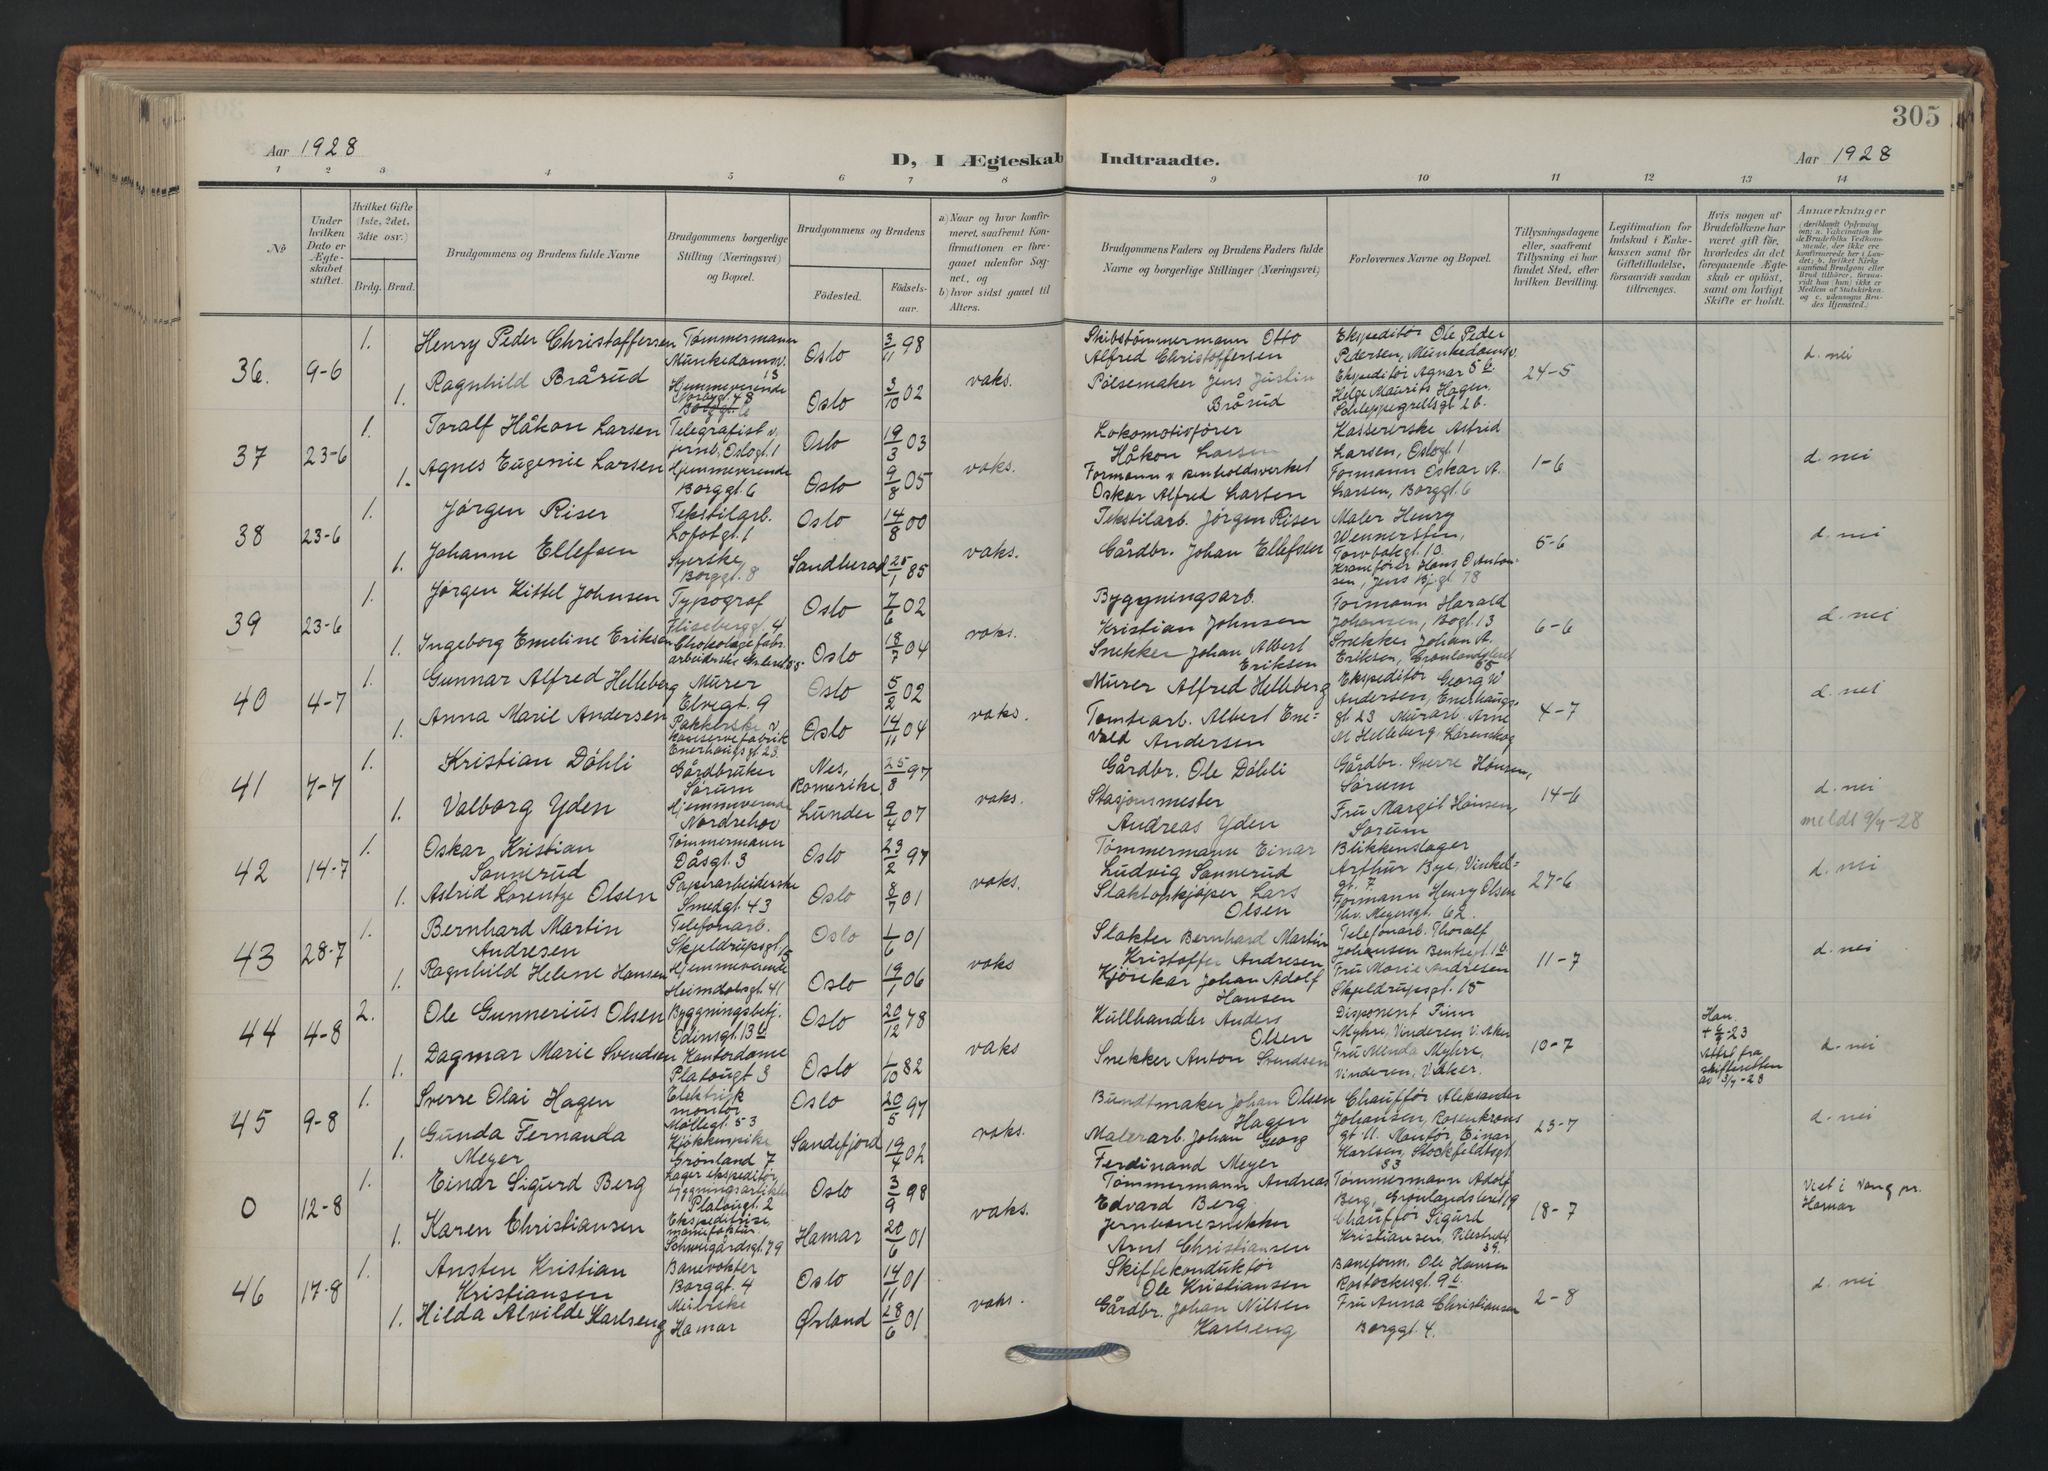 305
Aar 1928
D, I Ægteskab Indtraadte.
Aar 1928
1 2 3 4 5 6 7 8 9 10 11 12 13 14
No
Under hvilken Dato er Ægteskabet stiftet.
Hvilket Gifte (1ste, 2det, 3die osv.)
Brdg. Brud.
Brudgommens og Brudens fulde Navne
Brudgommens borgerlige Stilling (Næringsvei) og Bopæl.
Brudgommens og Brudens
Fødested.
Fødselsaar.
a) Naar og hvor konfirmeret, saafremt Konfirmationen er foregaaet udenfor Sognet, og
b) hvor sidst gaaet til Alters.
Brudgommens Faders og Brudens Faders fulde Navne og borgerlige Stillinger (Næringsvei)
Forlovernes Navne og Bopæl.
Tillysningsdagene eller, saafremt Tillysning ei har fundet Sted, efter hvilken Bevilling.
Legitimation for Indskud i Enkekassen samt for Giftetilladelse, forsaavidt saadan tiltrænges.
Hvis nogen af Brudefolkene har været gift før, hvorledes da det foregaaende Ægteskab er opløst, samt om lovligt Skifte er holdt.
Anmærkninger
36. 9-6
1. Henry Peder Christoffersen Tømmermann Munkedamsv. 13 Oslo 3/11 98
1. Ragnhild Brårud Hjemmeverende Norbygt. 48 Oslo 3/10 02
vaks.
Skibstømmermann Otto Alfred Christoffersen
Pølsemaker Jens Justin Brårud
Ekspeditør Ole Peder Pedersen, Munkedamsv.
Ekspeditør Agnar Helge Maurits Hagen, Schleppegrellsgt
24-5
d. nei
37 23-6
1. Toralf Håkon Larsen Telegrafist v. jernb, Oslogt. 1 Oslo 19/3 03
1. Agnes Eugenie Larsen Hjemmeverende Borggt. 6 Oslo 9/8 05
vaks.
Lokomotivfører Håkon Larsen
Formann v renholdsverket Oskar Alfred Larsen
Kassererske Astrid Larsen, Oslogt. 1
Formann Oskar A. Larsen, Borggt. 6
1-6
d. nei
38 23-6
1. Jørgen Riser Tekstilarb. Lofotgt. 1 Oslo 14/8 00
1. Johanne Ellefsen Syerske, Borggt. 8 Sandherad 25/1 85
vaks.
Tekstilarb. Jørgen Riser
Gårdbr. Johan Ellefsen
Maler Henry
Kranefører Hans O Antonsen, Jens Bj.gt. 78
5-6
d. nei
39 23-6
1. Jørgen Kittel Johnsen Typograf Flisebergt. 4 Oslo 7/6 02
1. Ingeborg Emeline Eriksen Chokoladefabr. arbeiderske Oslo 18/7 04
vaks.
Byggningsarb. Kristian Johnsen
Snekker Johan Albert Eriksen
Formann Harald Johansen, Bogt. 13
Snekker Johan A. Eriksen, Grønlandsleret 55
6-6
d. nei
40 4-7
1. Gunnar Alfred Helleberg Murer Elvegt. 9 Oslo 5/2 02
1. Anna Maril Andersen Pakkerske v. konservefabrik Enerhaugsgt. 23 Oslo 14/11 04
vaks.
Murer Alfred Helleberg
Tomtearb. Albert Enevald Andersen
Ekspeditør Georg W Andersen, Enerhaugsgt 23 Murarb. Arne M Helleberg, Lørenskog
4-7
d. nei
41 7-7
1. Kristian Döhli Gårdbruker Sørum Nes, Romerike 25/8 97
1. Valborg Yden Hjemmeverende Norderhov Lunder 9/4 07
vaks.
Gårdbr. Ole Döhli
Stasjonsmester Andreas Yden
Gårdbr. Sverre Hønsen, Sørum
Fru Margit Hønsen, Sørum
14-6
d. nei
meldt 9/7-28
42 14-7
1. Oskar Kristian Sannerud Tømmermann Dåsgt. 3 Oslo 23/2 97
1. Astrid Lorentze Olsen Papirarbeiderske Smedgt. 43 Oslo 8/7 01
vaks.
Tømmermann Einar Ludvig Sannerud
Slaktoskjøper Lars Olsen
Blikkenslager Arthur Bye, Vinkelgt. 7.
Formann Henry Olsen Thv. Meyersgt. 62.
27-6
d. nei
43 28-7
1. Bernhard Martin Andresen Telefonarb. Skjeldrupsgt. 15 Oslo 1/6 01
1. Ragnhild Helene Hansen Hjemmeverende Heimdalsgt. 41 Oslo 19/1 06
vaks
Slakter Bernhard Martin Kristoffer Andresen
Kjørekar Johan Adolf Hansen
Telefonarb. Thoralf Johansen Bentsegt. 16
Fru Marie Andresen Skjeldrupsgt. 15
11-7
d. nei
44 4-8
2. Ole Gunnerius Olsen Byggningsbetj. Odinsgt. 13b Oslo 20/12 78
1. Dagmar Marie Svendsen Kontordame Platougt 3 Oslo 1/10 82
vaks
Kullhandler Anders Olsen
Snekker Anton Svendsen
Disponent Finn Myhre, Vinderen V. Aker
Fru Menda Myhre, Vinderen, V. Aker.
10-7
Han.
Attest fra skifteretten av 3/7-28
d. nei
45 9-8
1. Sverre Olai Hagen Elektrisk montør Møllegt. 53 Oslo 20/5 97
1. Gunda Fernanda Meyer Kjøkkenpike Grønland 7 Sandefjord 19/4 02
vaks.
Bundtmaker Johan Olsen Hagen
Malerarb. Johan Georg Ferdinand Meyer
Chauffør Aleksander Johansen, Rosenkrans gt. 11. Montør Einar Karlsen, Stockfeldtsgt 33
23-7
d. nei
0 12-8
1. Einar Sigurd Berg Lager ekspeditør byggningsartikler Platougt. 2 Oslo 3/9 98
1. Karen Christiansen Ekspeditrise, manufaktur Schweigårdsgt. 79 Hamar 20/6 01
vaks.
Tømmermann Andreas Edvard Berg
Jernbanesnekker Arnt Christiansen
Tømmermann Adolf Berg, Grønlandsleret 19
Chauffør Sigurd Kristiansen, Pilestredet 39.
18-7
Viet i Vang pr. Hamar
46 17-8
1. Ansten Kristian Kristiansen Banevokter Borggt. 4 Oslo 14/11 01
1. Hilda Alvilde Karlseng Meierske Hamar Ørland 28/6 01
vaks.
Skiftekonduktør Ole Kristiansen
Gårdbr. Johan Nilsen Karlseng
Baneform. Ole Hansen Rostocksgt. 9b.
Fru Anna Christiansen Borggt. 4.
2-8
d. nei